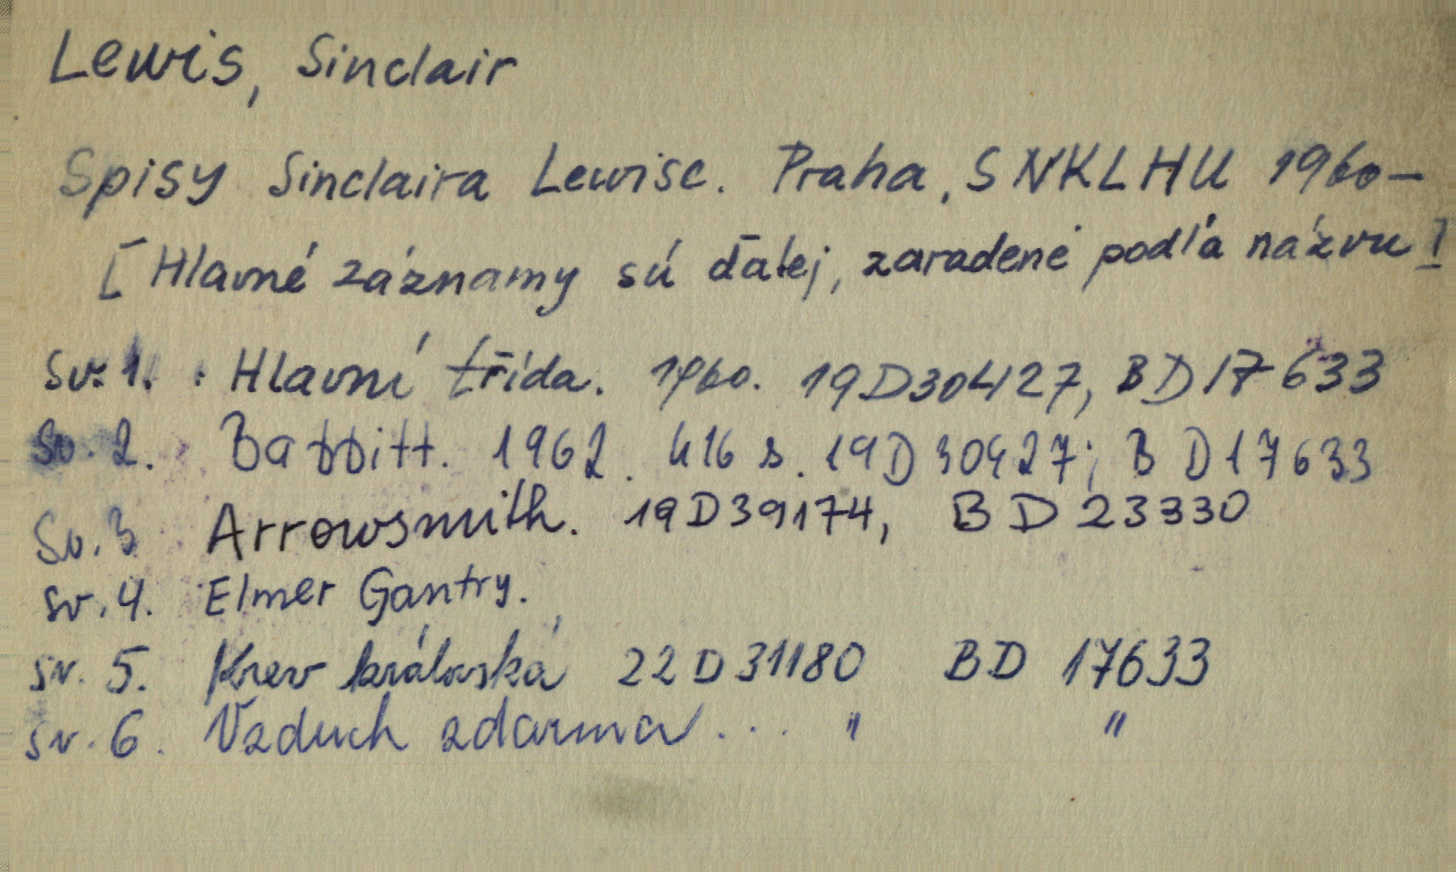 Lewis, Sinclair
Spisy Sinclaira Lewise. Praha, SNKLHU 1960-
[Hlavné záznamy sú ďalej, zaradené podľa názvu]
Sv. 1. Hlavní třída. 1960. 19D30427, BD17633
Sv. 2. Babbitt. 1962. 416 s. 19D30427; BD17633
Sv. 3 Arrowsmith. 19D39174, BD23330
Sv. 4. Elmer Gantry.
sv. 5. Krev královská 22D31180 BD 17633
sv. 6. Vzduch zdarma... " "